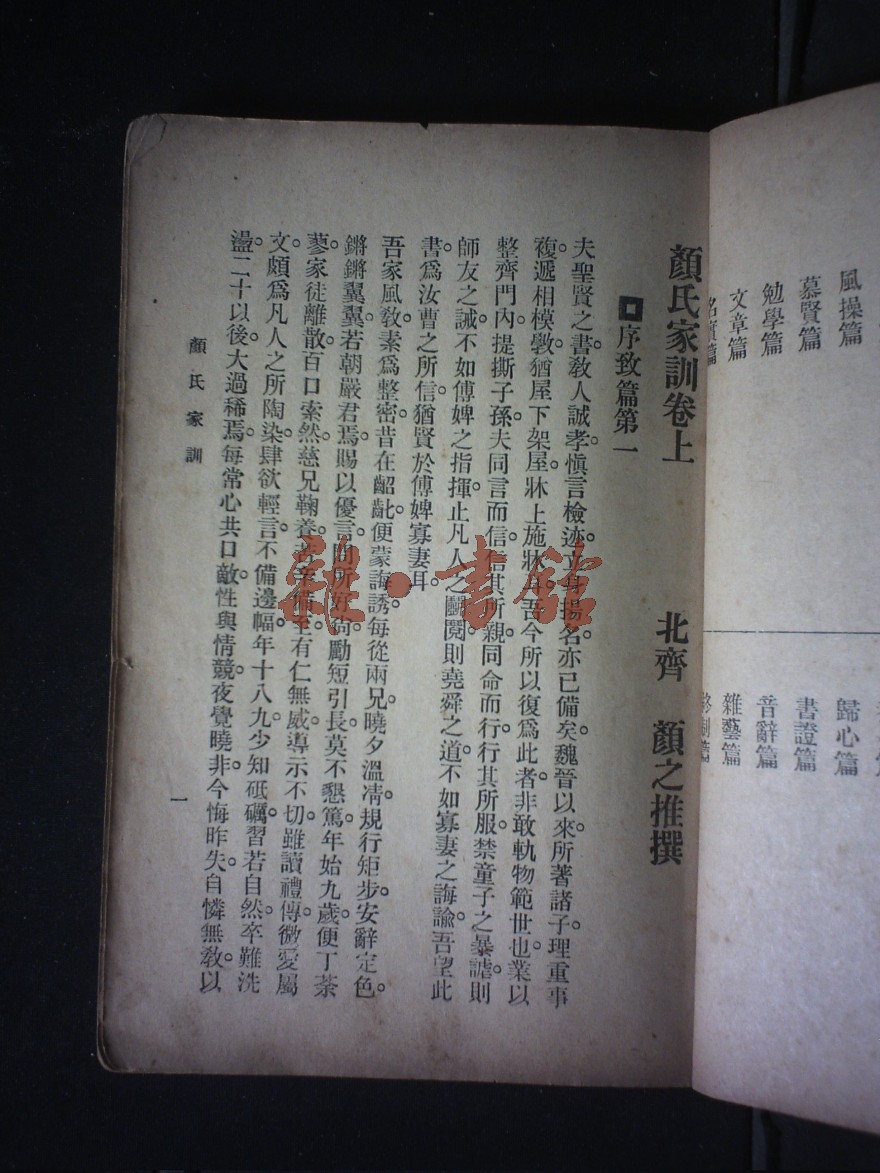 風操篇
慕賢篇
勉學篇
文章篇
名實篇
歸心篇
書證篇
音辭篇
雜藝篇
顏氏家訓卷上
北齊 顏之推撰
序致篇第一
夫聖賢之書。教人誠孝。愼言檢迹。立身揚名。亦已備矣。魏晉以來。所著諸子。理重事
複。遞相模斅。猶屋下架屋。牀上施牀耳。吾今所以復爲此者。非敢軌物範世也。業以
整齊門內。提撕子孫。夫同言而信。信其所親。同命而行。行其所服。禁童子之暴謔。則
師友之誡。不如傅婢之指揮。止凡人之鬬鬩。則堯舜之道。不如寡妻之誨諭。吾望此
書爲汝曹之所信。猶賢於傅婢寡妻耳。
吾家風教。素爲整密。昔在齠齔。便蒙誨誘。每從兩兄。曉夕溫凊。規行矩步。安辭定色。
鏘鏘翼翼。若朝嚴君焉。賜以優言。問所好尙。勵短引長。莫不懇篤。年始九歲。便丁荼
蓼。家徒離散。百口索然。慈兄鞠養。苦辛備至。有仁無威。導示不切。雖讀禮傳。微愛屬
文。頗爲凡人之所陶染。肆欲輕言。不備邊幅。年十八九。少知砥礪。習若自然。卒難洗
盪。二十以後。大過稀焉。每常心共口敵。性與情競。夜覺曉非。今悔昨失。自憐無教。以
顏氏家訓
一
雜·書館